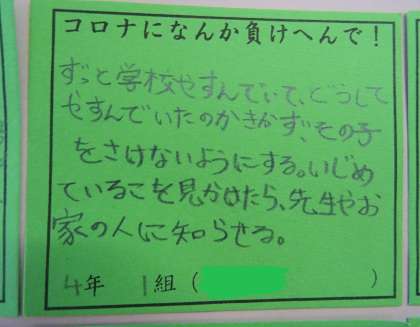 コロナになんか負けへんで！
ずっと学校やすんでいて、どうして
やすんでいたのかきかず、その子
をさけないようにする。いじめ
ているこを見かけたら、先生やお
家の人に知らせる。
4年 1組（ ）